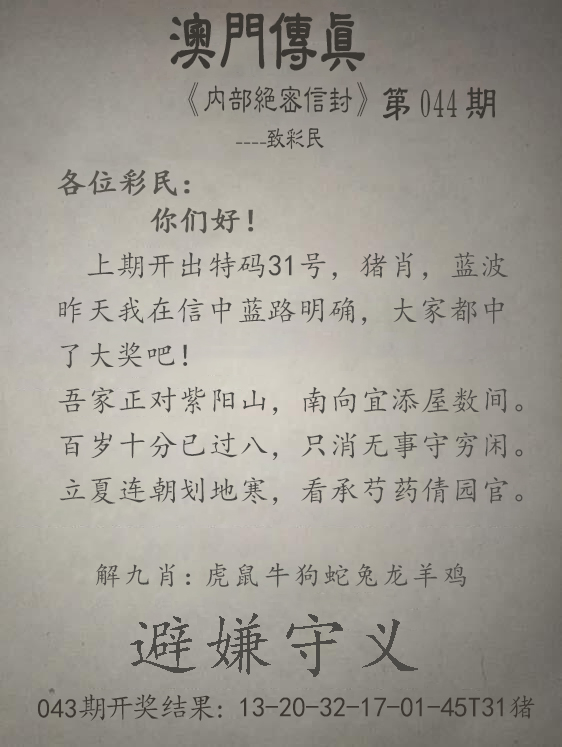 澳門傳眞
《内部絕密信封》第044期
----致彩民
各位彩民：
你们好！
上期开出特码31号，猪肖，蓝波
昨天我在信中蓝路明确，大家都中
了大奖吧！
吾家正对紫阳山，南向宜添屋数间。
百岁十分已过八，只消无事守穷闲。
立夏连朝划地寒，看承芍药倩园官。
解九肖：虎鼠牛狗蛇兔龙羊鸡
避嫌守义
043期开奖结果：13-20-32-17-01-45T31猪